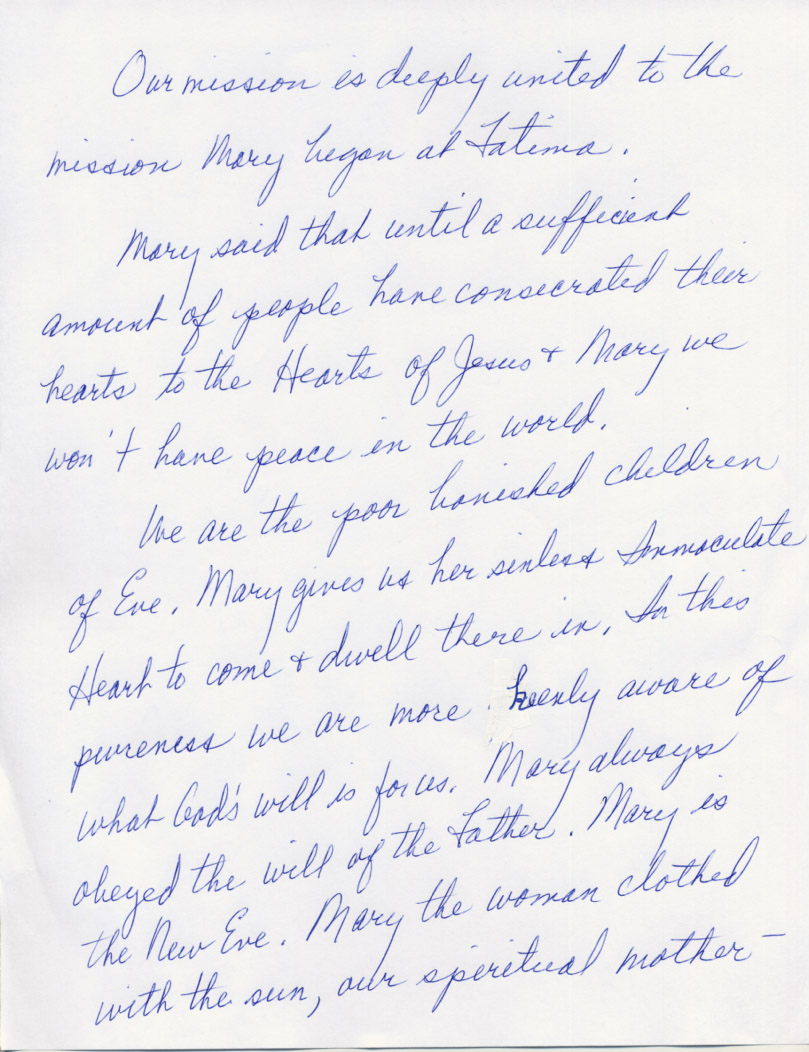 Our mission is deeply united to the
mission Mary began at Fatima.
Mary said that until a sufficient
amount of people have consecrated their
hearts to the Hearts of Jesus + Mary we
won't have peace in the world.
We are the poor banished children
of Eve. Mary gives us her sinless Immaculate
Heart to come + dwell there in. In this
pureness we are more keenly aware of
what God's will is for us. Mary always
obeyed the will of the Father. Mary is
the New Eve. Mary the woman clothed
with the sun, our spiritual mother –